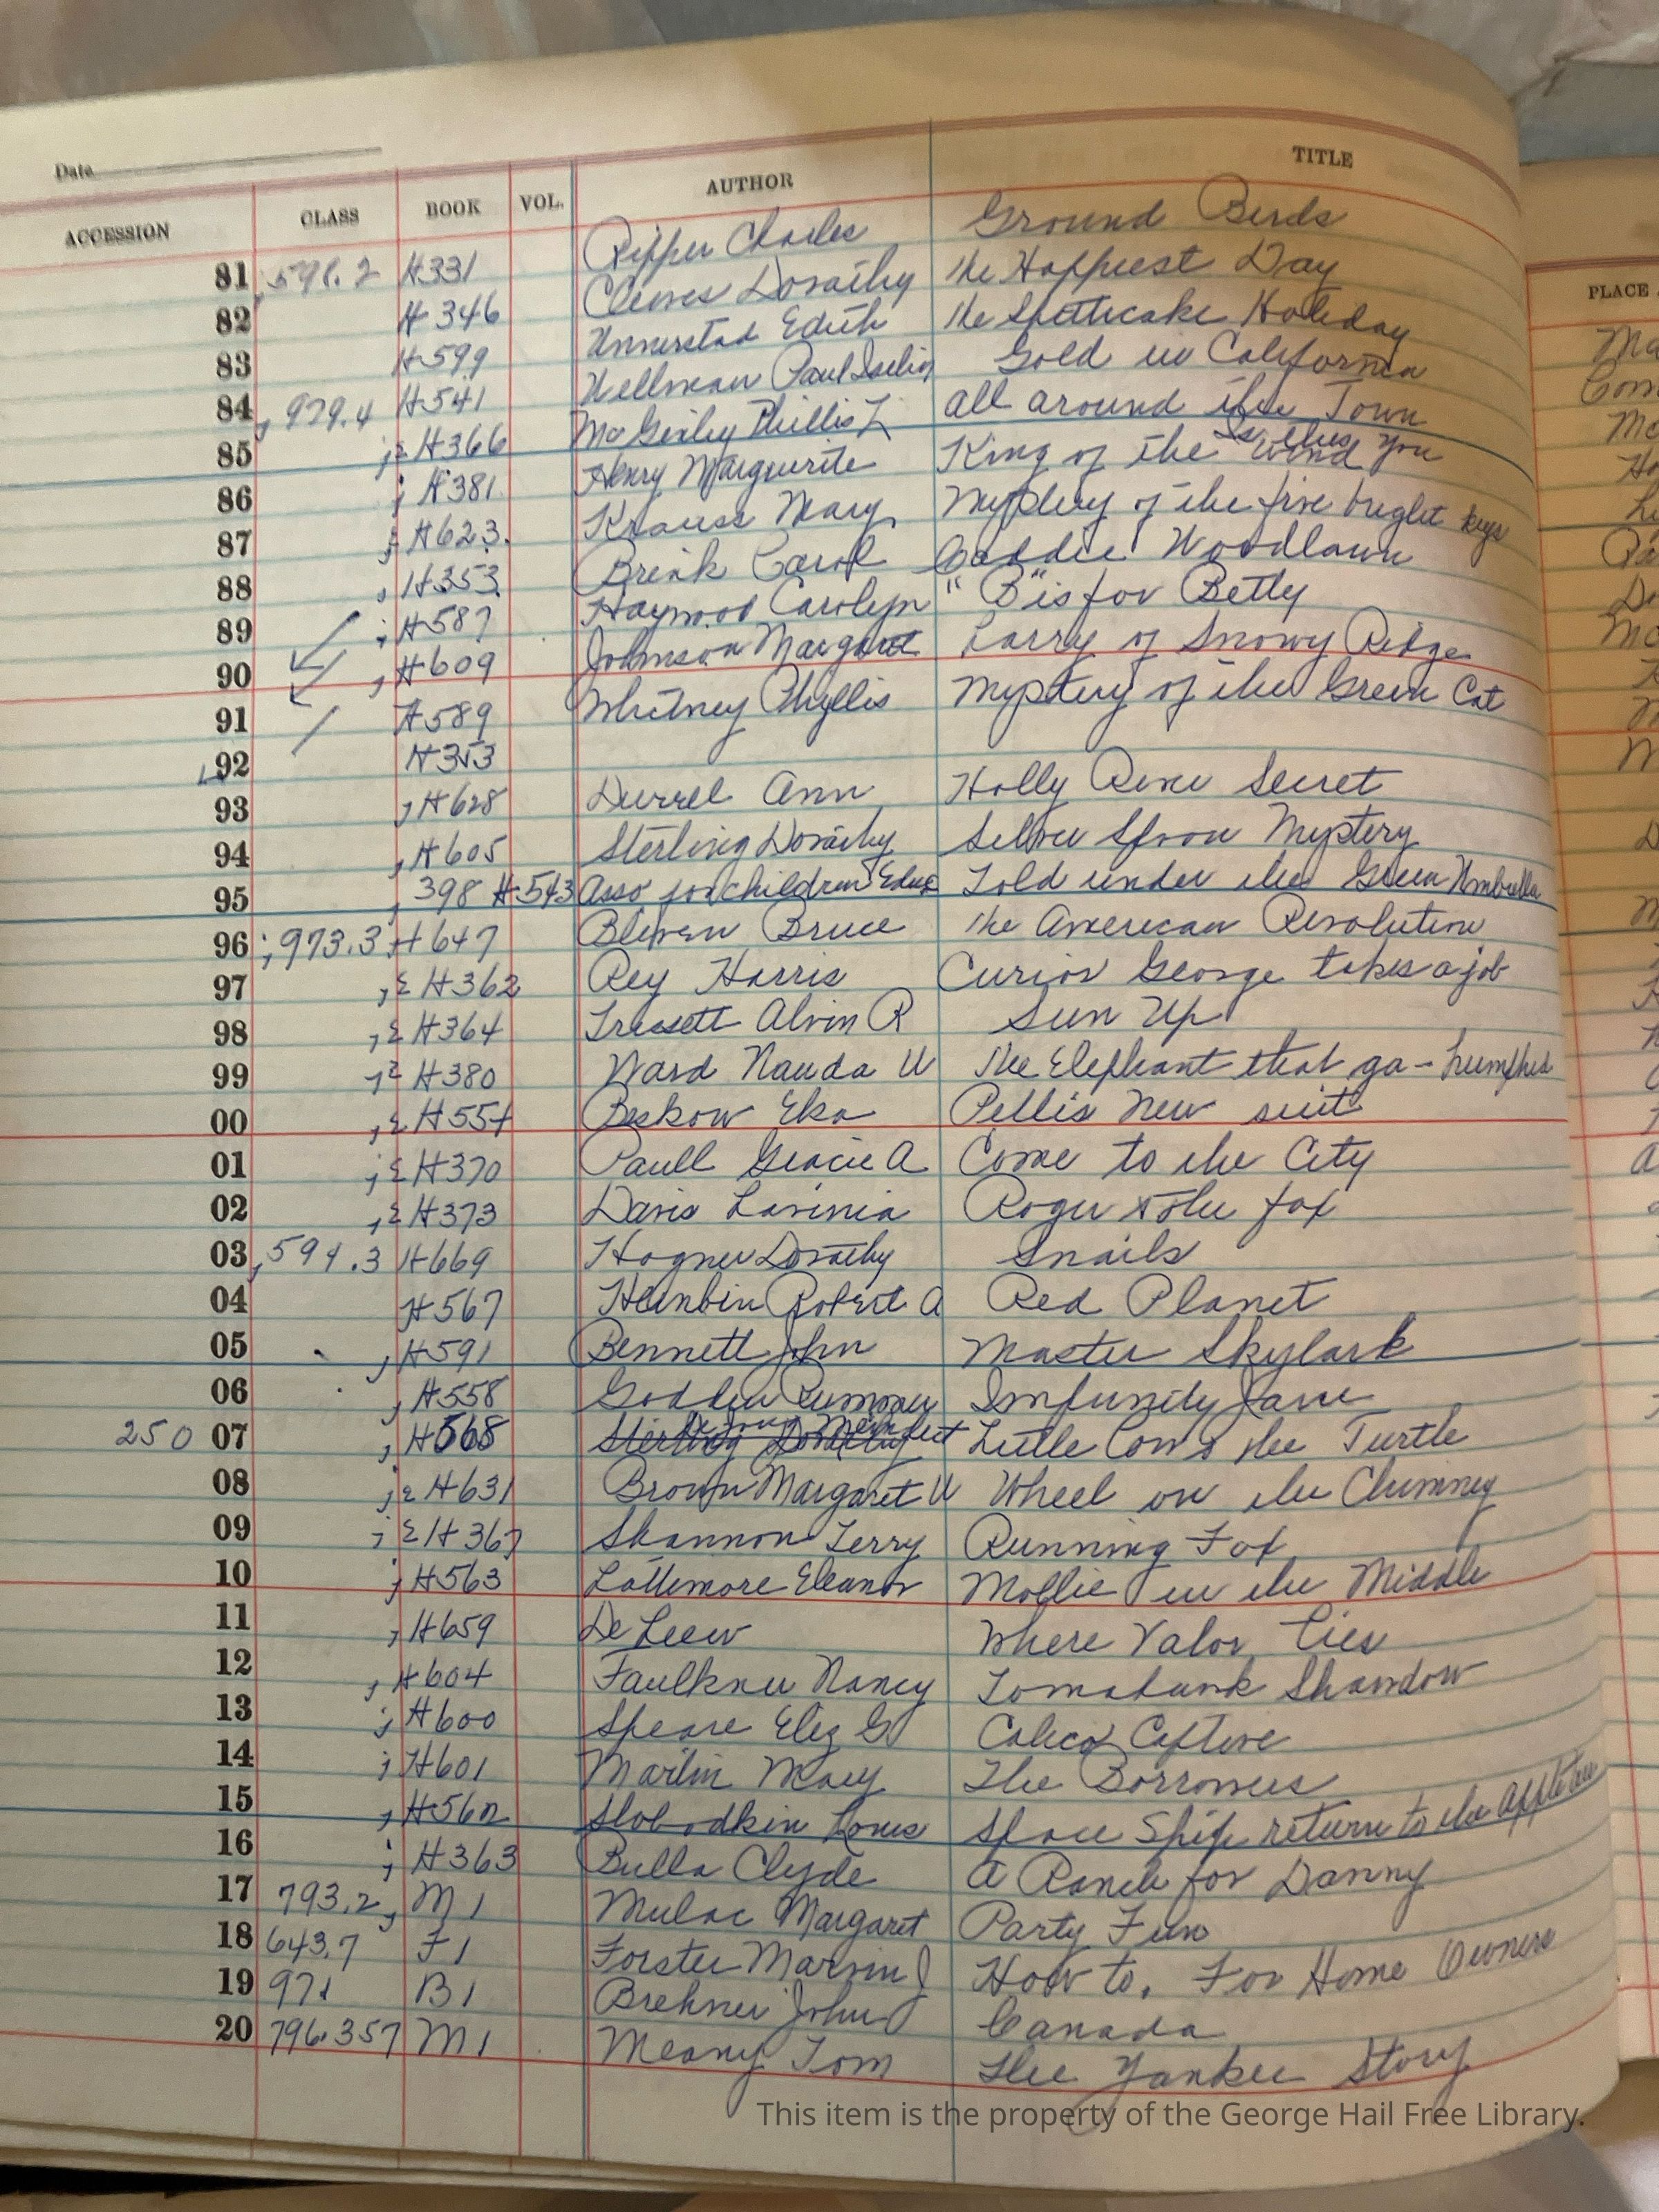 Date
ACCESSION CLASS BOOK VOL. AUTHOR TITLE
PLACE
81 ,598.2 H331 Ripper Charles Ground Birds
82 H346 Clewes Dorothy The Happiest Day
83 H599 Unnerstad Edith The Spettecake Holiday
84 , 979.4 H541 Wellman Paul Iselin Gold in California
85 j E H366 McGinley Phillis L All around the Town
86 j H381 Henry Marguerite King of the Wind
87 j H623. Krauss Mary Mystery of the five bright keys
88 , H353 Brink Carol Caddie Woodlawn
89 j H587 Haywood Carolyn "B" is for Betty
90 , H609 Johnson Margaret Larry of Snowy Ridge
91 H589 Whitney Phyllis Mystery of the Green Cat
92 H353
93 , H628 Durrel Ann Holly River Secret
94 , H605 Sterling Dorothy Silver Spoon Mystery
95 , 398 H543 Asso for children Educ Told under the Green Umbrella
96 j 973.3 H647 Bliven Bruce The American Revolution
97 , E H362 Rey Harris Curios George takes a job
98 , E H364 Tressett Alvin R Sun Up
99 , E H380 Ward Nauda W The Elephant that ga-humphed
00 , E H554 Beskow Elsa Pellis New suit
01 j E H370 Paull Gracie A Come to the City
02 , E H373 Davis Lavinia Roger & the fox
03 , 594.3 H669 Hogner Dorothy Snails
04 H567 Heinbein Robert A Red Planet
05 , H591 Bennett John Master Skylark
06 , H558 Godden Rummer Impunity Jane
250 07 , H568 Sterling Dorothy Dejong Meindert Little Cow & the Turtle
08 j E H631 Brown Margaret W Wheel on the Chimney
09 j E H367 Shannon Terry Running Fox
10 j H563 Lattimore Eleanor Mollie in the Middle
11 , H659 De Leeuw Where Valor Lies
12 , H604 Faulkner Nancy Tomahawk Shawdow
13 j H600 Speare Eliz G Calico Captive
14 j H601 Martin Mary The Borrowers
15 , H562 Slobodkin Louis Space Ship return to the apple tree
16 j H363 Bulla Clyde A Ranch for Danny
17 793.2, M1 Mulac Margaret Party Fun
18 643.7 F1 Forster Marvin J How to, For Home Owners
19 971 B1 Brehner John Canada
20 796.357 M1 Meany Tom The Yankee Story
This item is the property of the George Hail Free Library.